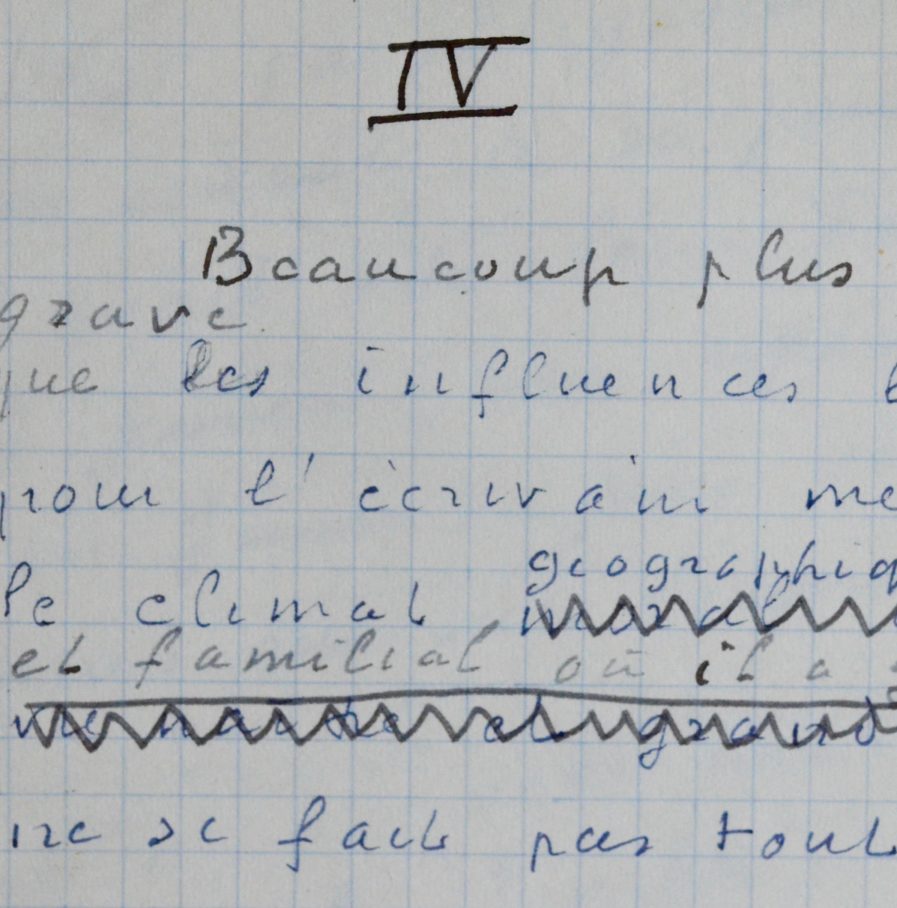 IV
Beaucoup plus
grave
que les influences
pour l'écrivain me
le climat geographiq
moral
et familial où il a
naître et grand
ne se fait pas tout